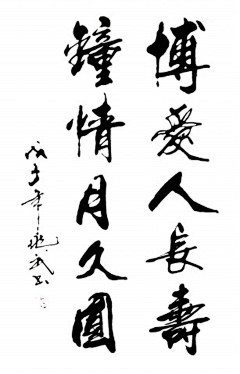 博愛人長壽
鐘情月久圓
戊子年